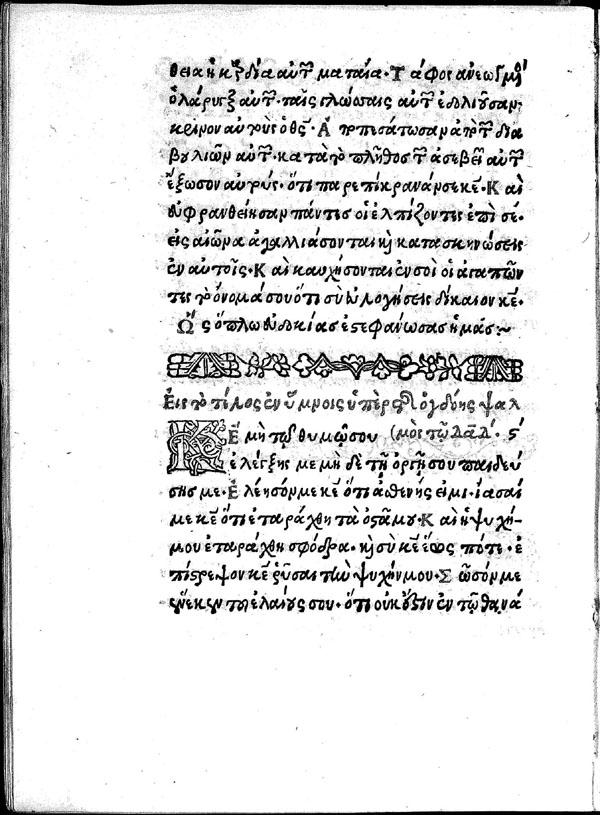 θεια ἡ καρδία αὐτῶν ματαία· Τάφος ἀνεῳγμένος
ὁ λάρυγξ αὐτῶν· ταῖς γλώσσαις αὐτῶν ἐδολιοῦσαν·
κρῖνον αὐτοὺς ὁ θς̄· Ἀποπεσάτωσαν ἀπὸ τῶν δια
βουλιῶν αὐτῶν· κατὰ τὸ πλῆθος τῶν ἀσεβειῶν αὐτῶν
ἔξωσον αὐτούς· ὅτι παρεπίκρανάν σε κε̄· Καὶ
εὐφρανθείησαν πάντες οἱ ἐλπίζοντες ἐπὶ σέ·
εἰς αἰῶνα ἀγαλλιάσονται καὶ κατασκηνώσεις
ἐν αὐτοῖς· Καὶ καυχήσονται ἐν σοὶ οἱ ἀγαπῶν
τες τὸ ὄνομά σου ὅτι σὺ εὐλογήσεις δίκαιον κε̄·
Ὡς ὅπλῳ εὐδοκίας ἐστεφάνωσας ἡμάς :~
Εἰς τὸ τέλος ἐν ὕμνοις ὑπὲρ τῆς ὀγδόης ψαλ
ΚΕ̄ μὴ τῷ θυμῷ σου (μὸς τῷ Δᾱδ· ϛ
ἐλέγξῃς με μὴ δὲ τῇ ὀργῇ σου παιδεύ
σῃς με· Ἐλέησόν με κε̄ ὅτι ἀσθενής εἰμι· ἴασαί
με κε̄ ὅτι ἐταράχθη τὰ ὀστᾶ μου· Καὶ ἡ ψυχή
μου ἐταράχθη σφόδρα· καὶ σὺ κε̄ ἕως πότε· ἐ
πίστρεψον κε̄ ῥῦσαι τὴν ψυχήν μου· Σῶσόν με
ἕνεκεν τοῦ ἐλαίους σου· ὅτι οὐκ ἔστιν ἐν τῷ θανά